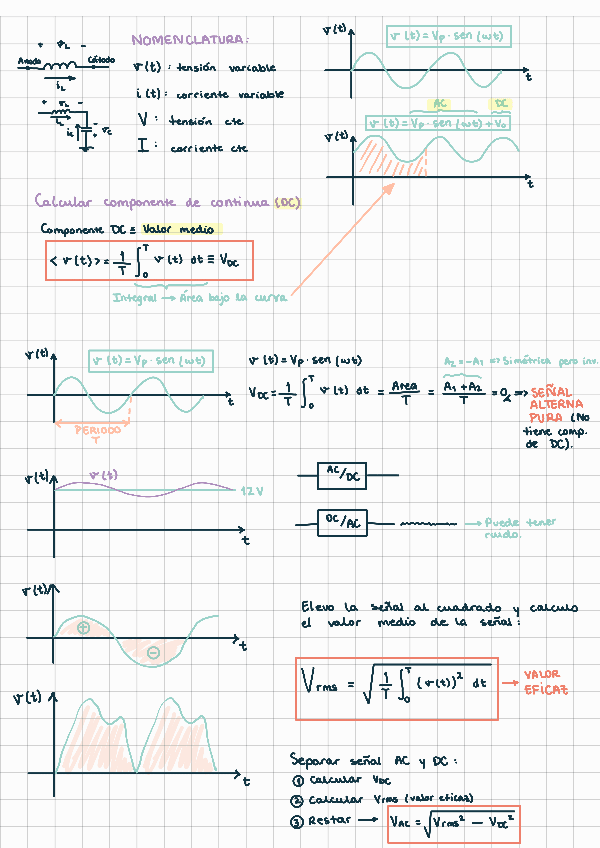 + v_L -
Ánodo
Cátodo
i_L
+ v_L -
i_L
i_c
+
v_c
-
NOMENCLATURA:
v(t): tensión variable
i(t): corriente variable
V: tensión cte
I: corriente cte
v(t)
v(t) = Vp · sen (ωt)
t
AC
DC
v(t) = Vp · sen (ωt) + V₀
v(t)
t
Calcular componente de continua (DC)
Componente DC ≡ Valor medio
< v(t) > = 1/T ∫₀ᵀ v(t) dt ≡ V_DC
Integral → Área bajo la curva
v(t)
v(t) = Vp · sen (ωt)
t
PERIODO
T
v(t) = Vp · sen (ωt)
A₂ = -A₁ => Simétrica pero inv.
V_DC = 1/T ∫₀ᵀ v(t) dt = Area/T = (A₁ + A₂)/T = 0 => SEÑAL
ALTERNA
PURA (No
tiene comp.
de DC).
v(t)
v(t)
12V
t
AC/DC
DC/AC
→ Puede tener
ruido.
v(t)
+
-
t
v(t)
t
Elevo la señal al cuadrado y calculo
el valor medio de la señal:
Vrms = √(1/T ∫₀ᵀ (v(t))² dt) → VALOR
EFICAZ
Separar señal AC y DC:
① Calcular V_DC
② Calcular Vrms (valor eficaz)
③ Restar → V_AC = √(Vrms² - V_DC²)